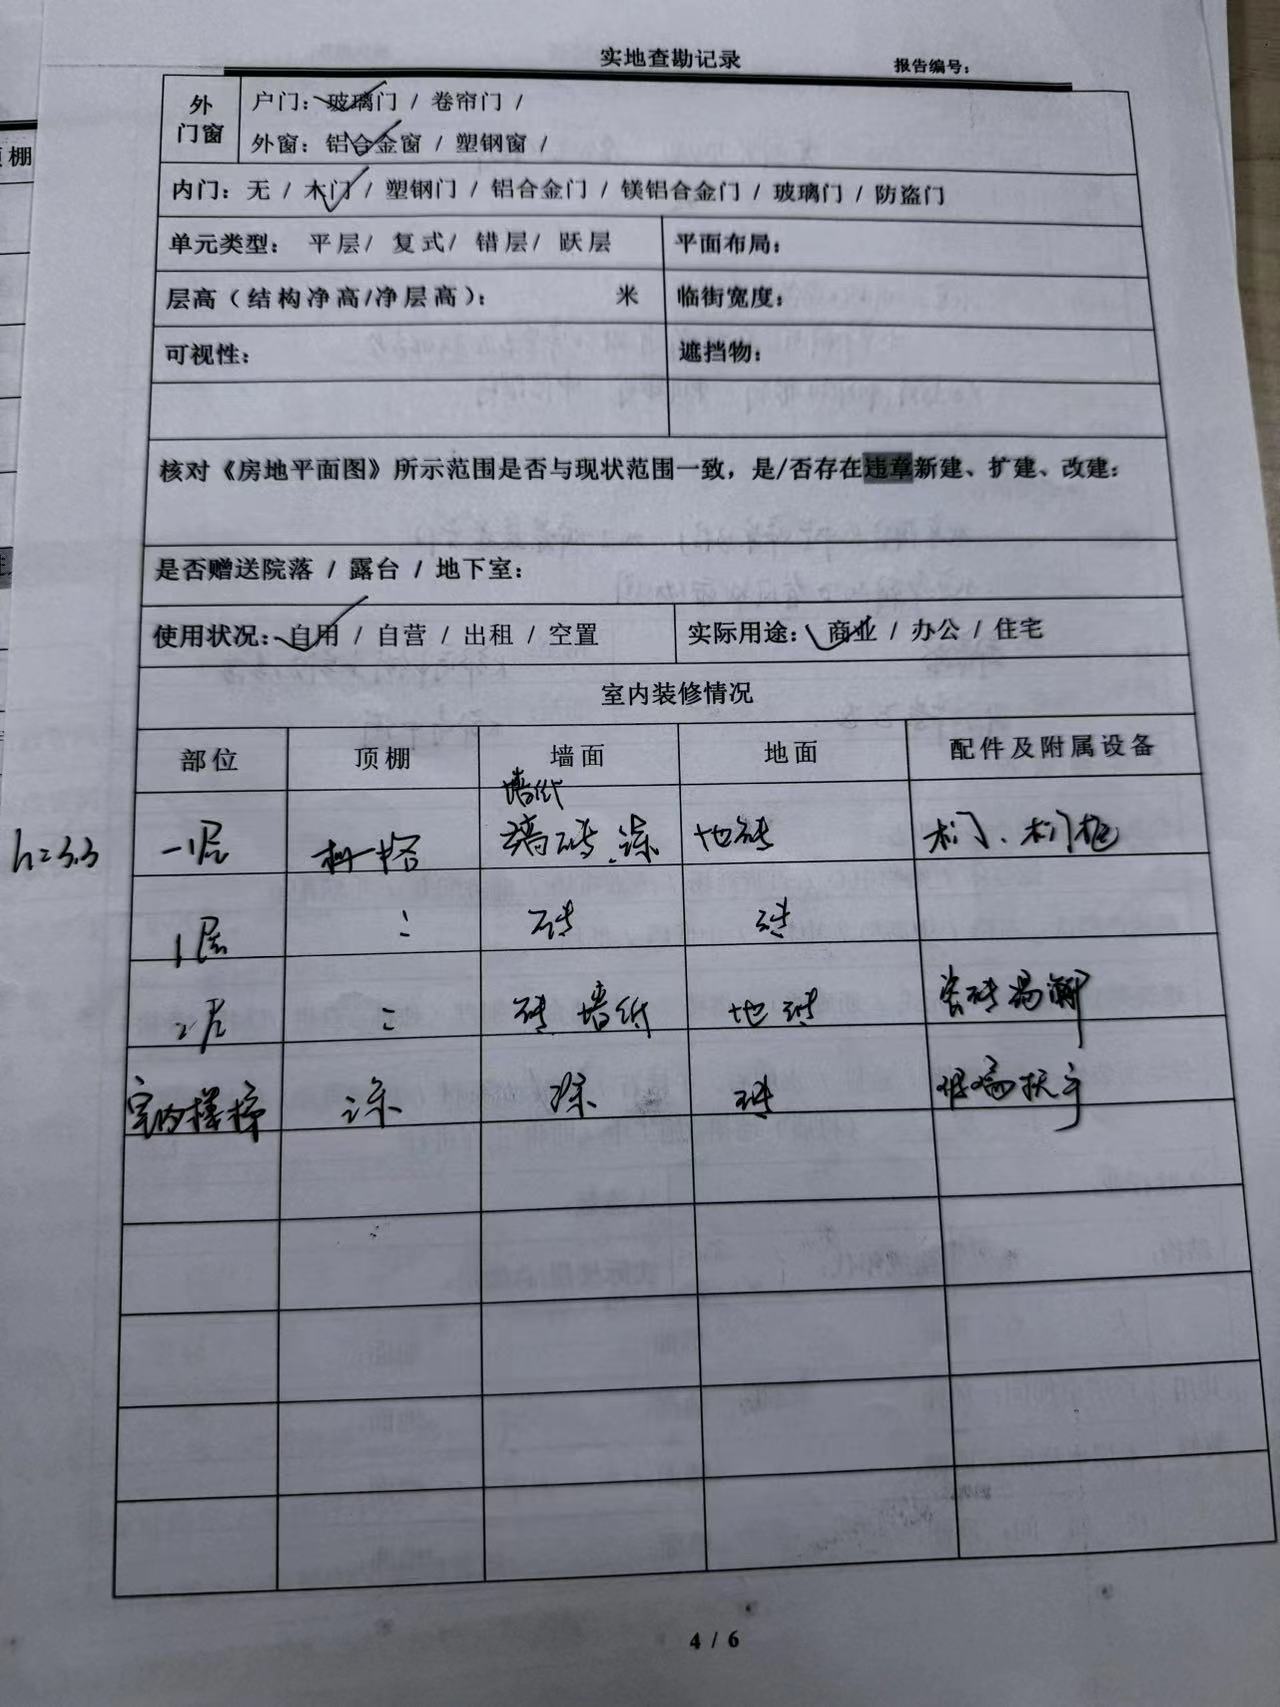 实地查勘记录
报告编号：
外门窗
户门：玻璃门 / 卷帘门 /
外窗：铝合金窗 / 塑钢窗 /
内门：无 / 木门 / 塑钢门 / 铝合金门 / 镁铝合金门 / 玻璃门 / 防盗门
单元类型： 平层/ 复式/ 错层/ 跃层
平面布局：
层高（结构净高/净层高）： 米
临街宽度：
可视性：
遮挡物：
核对《房地平面图》所示范围是否与现状范围一致，是/否存在违章新建、扩建、改建：
是否赠送院落 / 露台 / 地下室：
使用状况：自用 / 自营 / 出租 / 空置
实际用途：商业 / 办公 / 住宅
室内装修情况
部位 顶棚 墙面 地面 配件及附属设备
墙纸
h=3.3 -1层 墙砖、涂 地砖 木门、木门框
1层 : 砖 砖
2层 : 砖 墙纸 地砖
室内楼梯 涂 涂 砖 扶手
4 / 6
棚